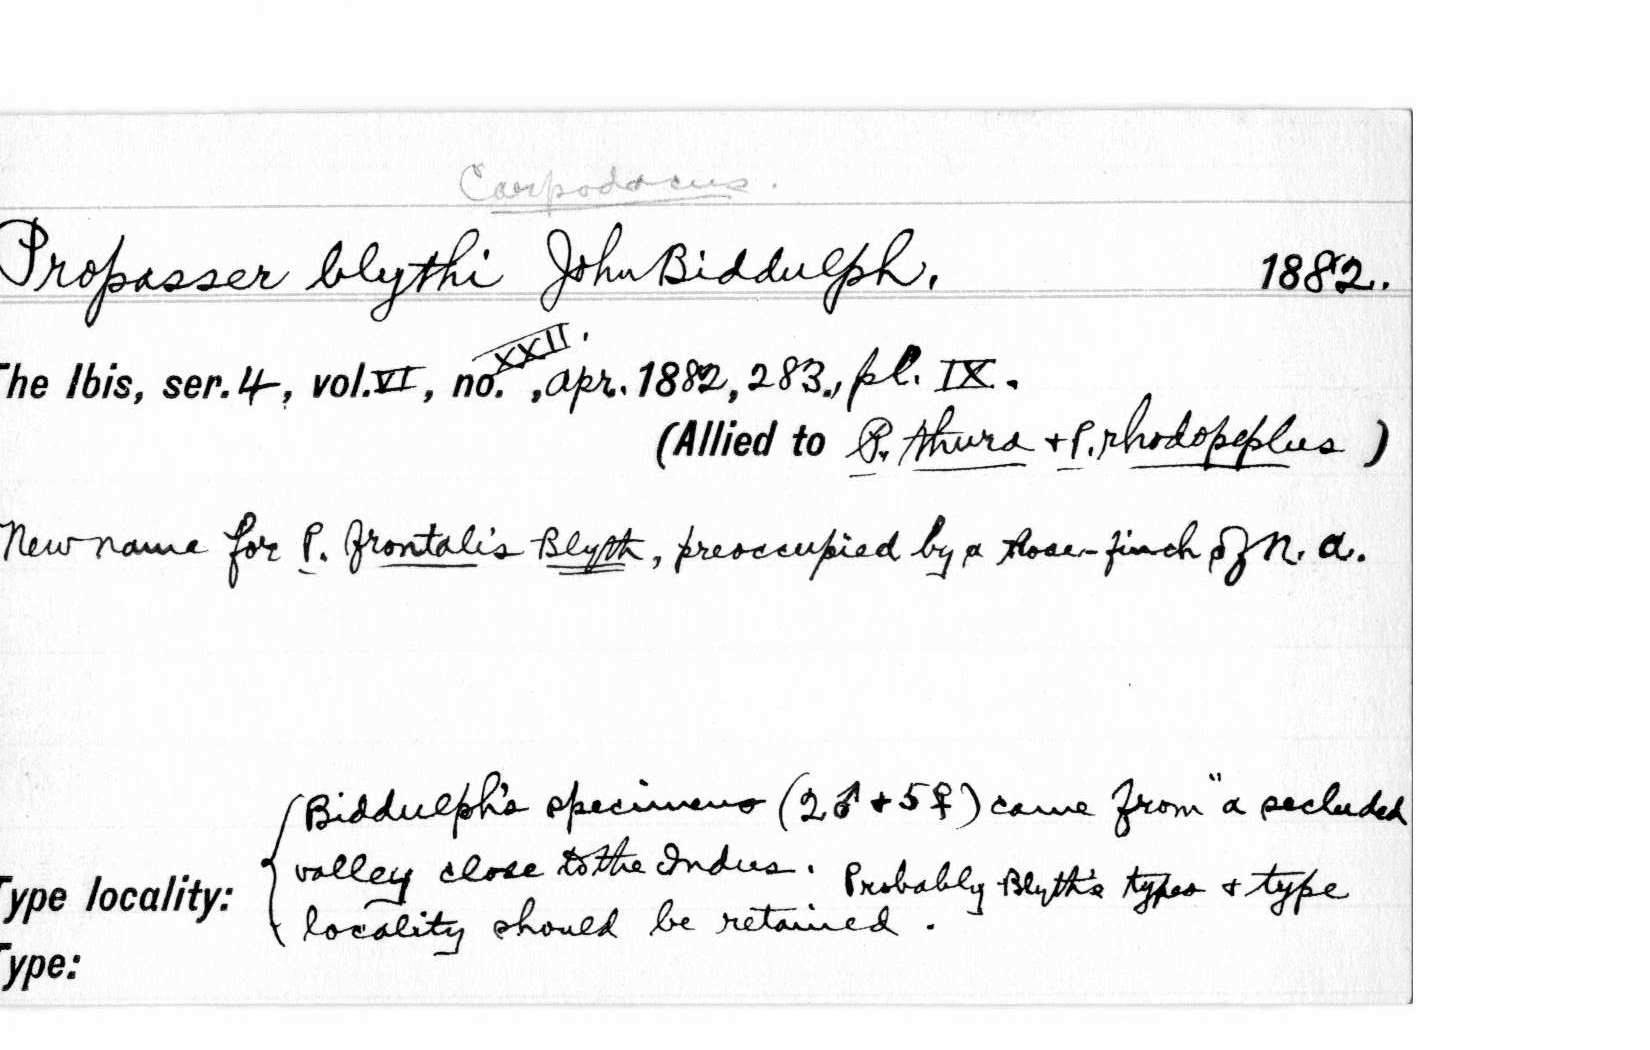 Carpodacus.
Propasser blythi John Biddulph, 1882.
The Ibis, ser. 4, vol. VI, no. XXII., apr. 1882, 283., pl. IX.
(Allied to P. thura + P. rhodopeplus )
New name for P. frontalis Blyth, preoccupied by a Rose-finch of N. A.
Biddulph's specimens (2♂ + 5♀) came from "a secluded
valley close to the Indus. Probably Blyth's types + type
Type locality:
locality should be retained.
Type: